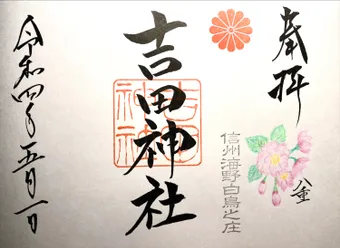 奉拝
八重
信州海野白鳥之庄
吉田神社
令和四年五月一日